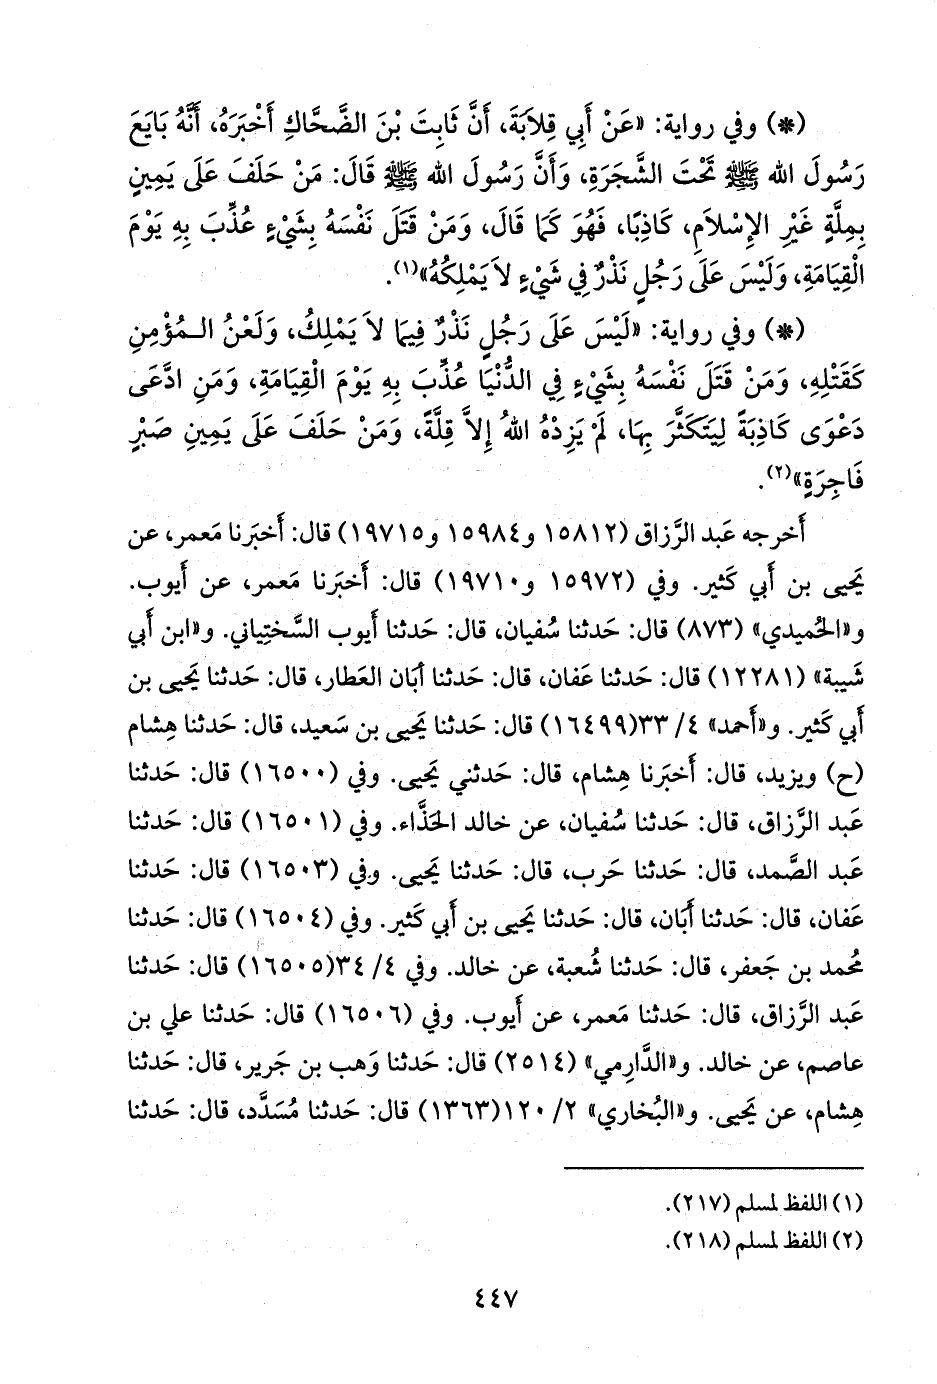 (*) وفي رواية: «عَنْ أَبِي قِلاَبَةَ، أَنَّ ثَابِتَ بْنَ الضَّحَّاكِ أَخْبَرَهُ، أَنَّهُ بَايَعَ
رَسُولَ الله ﷺ تَحْتَ الشَّجَرَةِ، وَأَنَّ رَسُولَ الله ﷺ قَالَ: مَنْ حَلَفَ عَلَى يَمِينٍ
بِمِلَّةٍ غَيْرِ الإِسْلاَمِ، كَاذِبًا، فَهُوَ كَمَا قَالَ، وَمَنْ قَتَلَ نَفْسَهُ بِشَيْءٍ عُذِّبَ بِهِ يَوْمَ
الْقِيَامَةِ، وَلَيْسَ عَلَى رَجُلٍ نَذْرٌ فِي شَيْءٍ لاَ يَمْلِكُهُ»(١).
(*) وفي رواية: «لَيْسَ عَلَى رَجُلٍ نَذْرٌ فِيمَا لاَ يَمْلِكُ، وَلَعْنُ الـمُؤْمِنِ
كَقَتْلِهِ، وَمَنْ قَتَلَ نَفْسَهُ بِشَيْءٍ فِي الدُّنْيَا عُذِّبَ بِهِ يَوْمَ الْقِيَامَةِ، وَمَنِ ادَّعَى
دَعْوَى كَاذِبَةً لِيَتَكَثَّرَ بِهَا، لَمْ يَزِدْهُ اللهُ إِلاَّ قِلَّةً، وَمَنْ حَلَفَ عَلَى يَمِينِ صَبْرٍ
فَاجِرَةٍ»(٢).
أَخرجه عَبد الرَّزاق (١٥٨١٢ و١٥٩٨٤ و١٩٧١٥) قال: أَخبَرنا مَعمر، عن
يَحيى بن أَبي كَثير. وفي (١٥٩٧٢ و١٩٧١٠) قال: أَخبَرنا مَعمر، عن أَيوب.
و«الحُميدي» (٨٧٣) قال: حَدثنا سُفيان، قال: حَدثنا أَيوب السَّختِياني. و«ابن أَبي
شَيبة» (١٢٢٨١) قال: حَدثنا عَفان، قال: حَدثنا أَبَان العَطار، قال: حَدثنا يَحيى بن
أَبي كَثير. و«أَحمد» ٤/ ٣٣(١٦٤٩٩) قال: حَدثنا يَحيى بن سَعيد، قال: حَدثنا هِشام
(ح) ويزيد، قال: أَخبَرنا هِشام، قال: حَدثني يَحيى. وفي (١٦٥٠٠) قال: حَدثنا
عَبد الرَّزاق، قال: حَدثنا سُفيان، عن خالد الحَذَّاء. وفي (١٦٥٠١) قال: حَدثنا
عَبد الصَّمد، قال: حَدثنا حَرب، قال: حَدثنا يَحيى. وفي (١٦٥٠٣) قال: حَدثنا
عَفان، قال: حَدثنا أَبَان، قال: حَدثنا يَحيى بن أَبي كَثير. وفي (١٦٥٠٤) قال: حَدثنا
مُحمد بن جَعفر، قال: حَدثنا شُعبة، عن خالد. وفي ٤/ ٣٤(١٦٥٠٥) قال: حَدثنا
عَبد الرَّزاق، قال: حَدثنا مَعمر، عن أَيوب. وفي (١٦٥٠٦) قال: حَدثنا علي بن
عاصم، عن خالد. و«الدَّارِمي» (٢٥١٤) قال: حَدثنا وَهب بن جَرير، قال: حَدثنا
هِشام، عن يَحيى. و«البُخاري» ٢/ ١٢٠(١٣٦٣) قال: حَدثنا مُسَدَّد، قال: حَدثنا
(١) اللفظ لمسلم (٢١٧).
(٢) اللفظ لمسلم (٢١٨).
٤٤٧